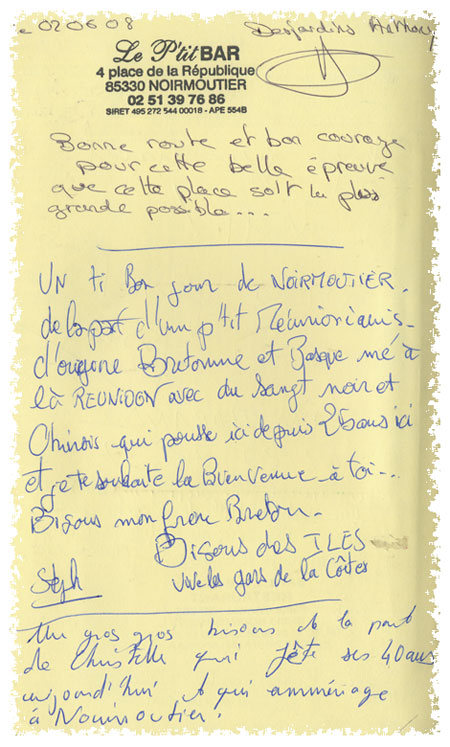 02 06 08
Desjardins Anthony
Le P'tit BAR
4 place de la République
85330 NOIRMOUTIER
02 51 39 76 86
SIRET 495 272 544 00018 - APE 554B
Bonne route et bon courage
pour cette belle épreuve
que cette place soit la plus
grande possible....
UN ti Bon jour de NOIRMOUTIER.
de la part d'un p'tit Réunionnais
d'origine Bretonne et Basque né à
là REUNION avec du sangt noir et
Chinois qui pousse ici depuis 26 ans ici
et je te souhaite la Bienvenue à toi...
Bisous mon frere Breton.
Bisous des ILES
Steph
vive les gars de la Côtes
Un gros gros bisous de la part
de Christelle qui fête ses 40 ans
aujourd'hui et qui amménage
à Noirmoutier.